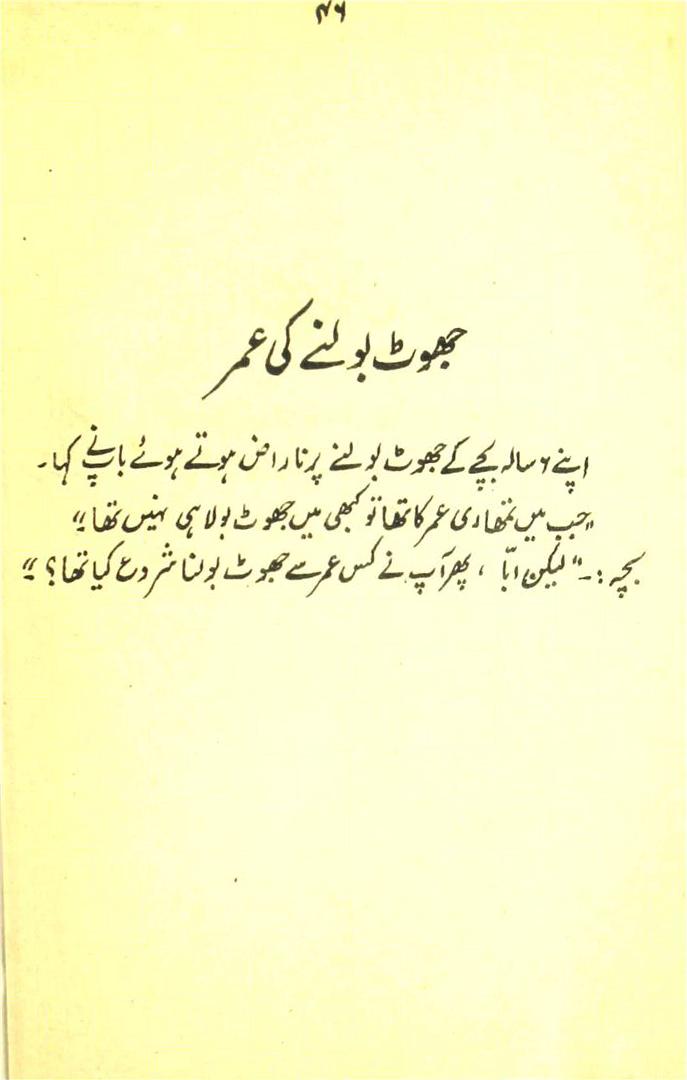 ۴۶
جھوٹ بولنے کی عمر
اپنے ۶ سالہ بچے کے جھوٹ بولنے پر ناراض ہوتے ہوئے باپ نے کہا۔
"جب میں تمھاری عمر کا تھا تو کبھی میں جھوٹ بولا ہی نہیں تھا۔"
بچہ :۔ "لیکن ابّا ، پھر آپ نے کس عمر سے جھوٹ بولنا شروع کیا تھا؟"